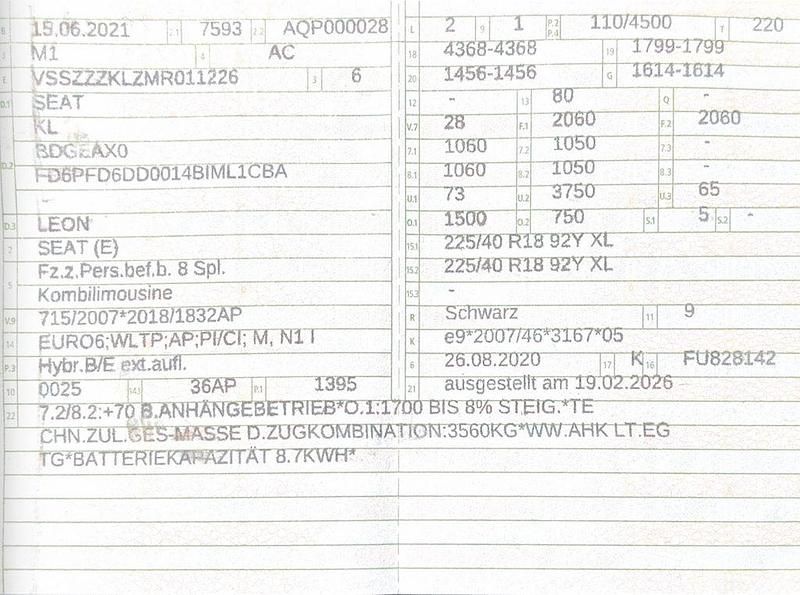 B 15.06.2021 2.1 7593 2.2 AQP000028
J M1 4 AC
E VSSZZZKLZMR011226 3 6
D.1 SEAT
KL
D.2 BDGEAX0
FD6PFD6DD0014BIML1CBA
-
D.3 LEON
2 SEAT (E)
5 Fz.z.Pers.bef.b. 8 Spl.
Kombilimousine
V.9 715/2007*2018/1832AP
14 EURO6;WLTP;AP;PI/CI; M, N1 I
P.3 Hybr.B/E ext.aufl.
10 0025 14.1 36AP P.1 1395
L 2 9 1 P.2 P.4 110/4500 T 220
18 4368-4368 19 1799-1799
20 1456-1456 G 1614-1614
12 - 13 80 Q -
V.7 28 F.1 2060 F.2 2060
7.1 1060 7.2 1050 7.3 -
8.1 1060 8.2 1050 8.3 -
U.1 73 U.2 3750 U.3 65
O.1 1500 O.2 750 S.1 5 S.2 -
15.1 225/40 R18 92Y XL
15.2 225/40 R18 92Y XL
15.3 -
R Schwarz 11 9
K e9*2007/46*3167*05
6 26.08.2020 17 K 16 FU828142
21 ausgestellt am 19.02.2026
22 7.2/8.2:+70 B.ANHÄNGEBETRIEB*O.1:1700 BIS 8% STEIG.*TE
CHN.ZUL.GES-MASSE D.ZUGKOMBINATION:3560KG*WW.AHK LT.EG
TG*BATTERIEKAPAZITÄT 8.7KWH*